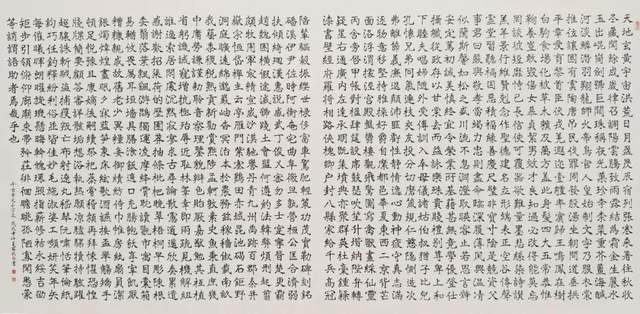 天地玄黃宇宙洪荒日月盈昃辰宿列張寒來暑往秋收
冬藏閏餘成歲律呂調陽雲騰致雨露結為霜金生麗水
玉出崑岡劍號巨闕珠稱夜光果珍李柰菜重芥薑海鹹
河淡鱗潛羽翔龍師火帝鳥官人皇始制文字乃服衣裳
推位讓國有虞陶唐弔民伐罪周發殷湯坐朝問道垂拱
平章愛育黎首臣伏戎羌遐邇壹體率賓歸王鳴鳳在樹
白駒食場化被草木賴及萬方蓋此身髮四大五常恭惟
鞠養豈敢毀傷女慕貞潔男效才良知過必改得能莫忘
罔談彼短靡恃己長信使可覆器欲難量墨悲絲染詩讚
羔羊景行維賢剋念作聖德建名立形端表正空谷傳聲
虛堂習聽禍因惡積福緣善慶尺璧非寶寸陰是競資父
事君曰嚴與敬孝當竭力忠則盡命臨深履薄夙興溫凊
似蘭斯馨如松之盛川流不息淵澄取映容止若思言辭
安定篤初誠美慎終宜令榮業所基籍甚無竟學優登仕
攝職從政存以甘棠去而益詠樂殊貴賤禮別尊卑上和
下睦夫唱婦隨外受傅訓入奉母儀諸姑伯叔猶子比兒
孔懷兄弟同氣連枝交友投分切磨箴規仁慈隱惻造次
弗離節義廉退顛沛匪虧性靜情逸心動神疲守真志滿
逐物意移堅持雅操好爵自縻都邑華夏東西二京背邙
面洛浮渭據涇宮殿盤鬱樓觀飛驚圖寫禽獸畫綵仙靈
丙舍傍啟甲帳對楹肆筵設席鼓瑟吹笙陞階納陛弁轉
疑星右通廣內左達承明既集墳典亦聚群英杜稿鍾隸
漆書壁經府羅將相路俠槐卿戶封八縣家給千兵高冠
陪輦驅轂振纓世祿侈富車駕肥輕策功茂實勒碑刻銘
磻溪伊尹佐時阿衡奄宅曲阜微旦孰營桓公匡合濟弱
扶傾綺迴漢惠說感武丁俊乂密勿多士寔寧晉楚更霸
趙魏困橫假途滅虢踐土會盟何遵約法韓弊煩刑起翦
頗牧用軍最精宣威沙漠馳譽丹青九州禹跡百郡秦并
嶽宗恆岱禪主云亭雁門紫塞雞田赤城昆池碣石鉅野
洞庭曠遠綿邈巖岫杳冥治本於農務茲稼穡俶載南畝
我藝黍稷稅熟貢新勸賞黜陟孟軻敦素史魚秉直庶幾
中庸勞謙謹敕聆音察理鑑貌辨色貽厥嘉猷勉其祗植
省躬譏誡寵增抗極殆辱近恥林皋幸即兩疏見機解組
誰逼索居閒處沉默寂寥求古尋論散慮逍遙欣奏累遣
慼謝歡招渠荷的歷園莽抽條枇杷晚翠梧桐早彫陳根
委翳落葉飄颻游鵾獨運凌摩絳霄耽讀翫市寓目囊箱
易輶攸畏屬耳垣牆具膳餐飯適口充腸飽飫烹宰飢厭
糟糠親戚故舊老少異糧妾御績紡侍巾帷房紈扇圓潔
銀燭煒煌晝眠夕寐藍筍象床弦歌酒讌接杯舉觴矯手
頓足悅豫且康嫡後嗣續祭祀蒸嘗稽顙再拜悚懼恐惶
牋牒簡要顧答審詳骸垢想浴執熱願涼驢騾犢特駭躍
超驤誅斬賊盜捕獲叛亡布射遼丸嵇琴阮嘯恬筆倫紙
鈞巧任釣釋紛利俗並皆佳妙毛施淑姿工顰妍笑年矢
每催曦暉朗曜璇璣懸斡晦魄環照指薪修祜永綏吉劭
矩步引領俯仰廊廟束帶矜莊徘徊瞻眺孤陋寡聞愚蒙
等誚謂語助者焉哉乎也